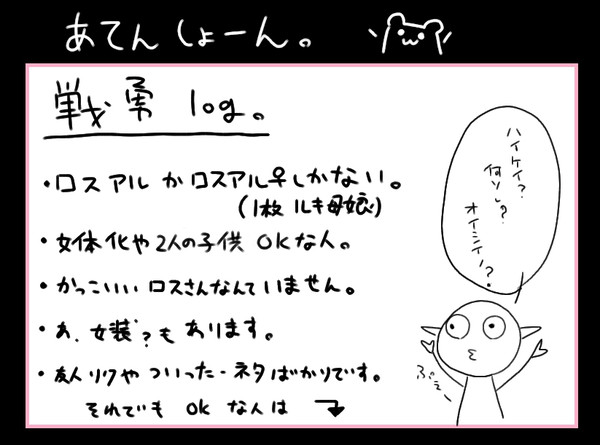 あてんしょーん。
戦勇 log。
・ロスアルかロスアル♀しかない。
(1枚 ルキ母娘)
・女体化や2人の子供 OKな人。
・かっこいいロスさんなんていません。
・あ、女装?もあります。
・友人リクやついったーネタばかりです。
それでも OK な人は
ハイケイ?
何ソレ?
オイシイノ?
ぶえー